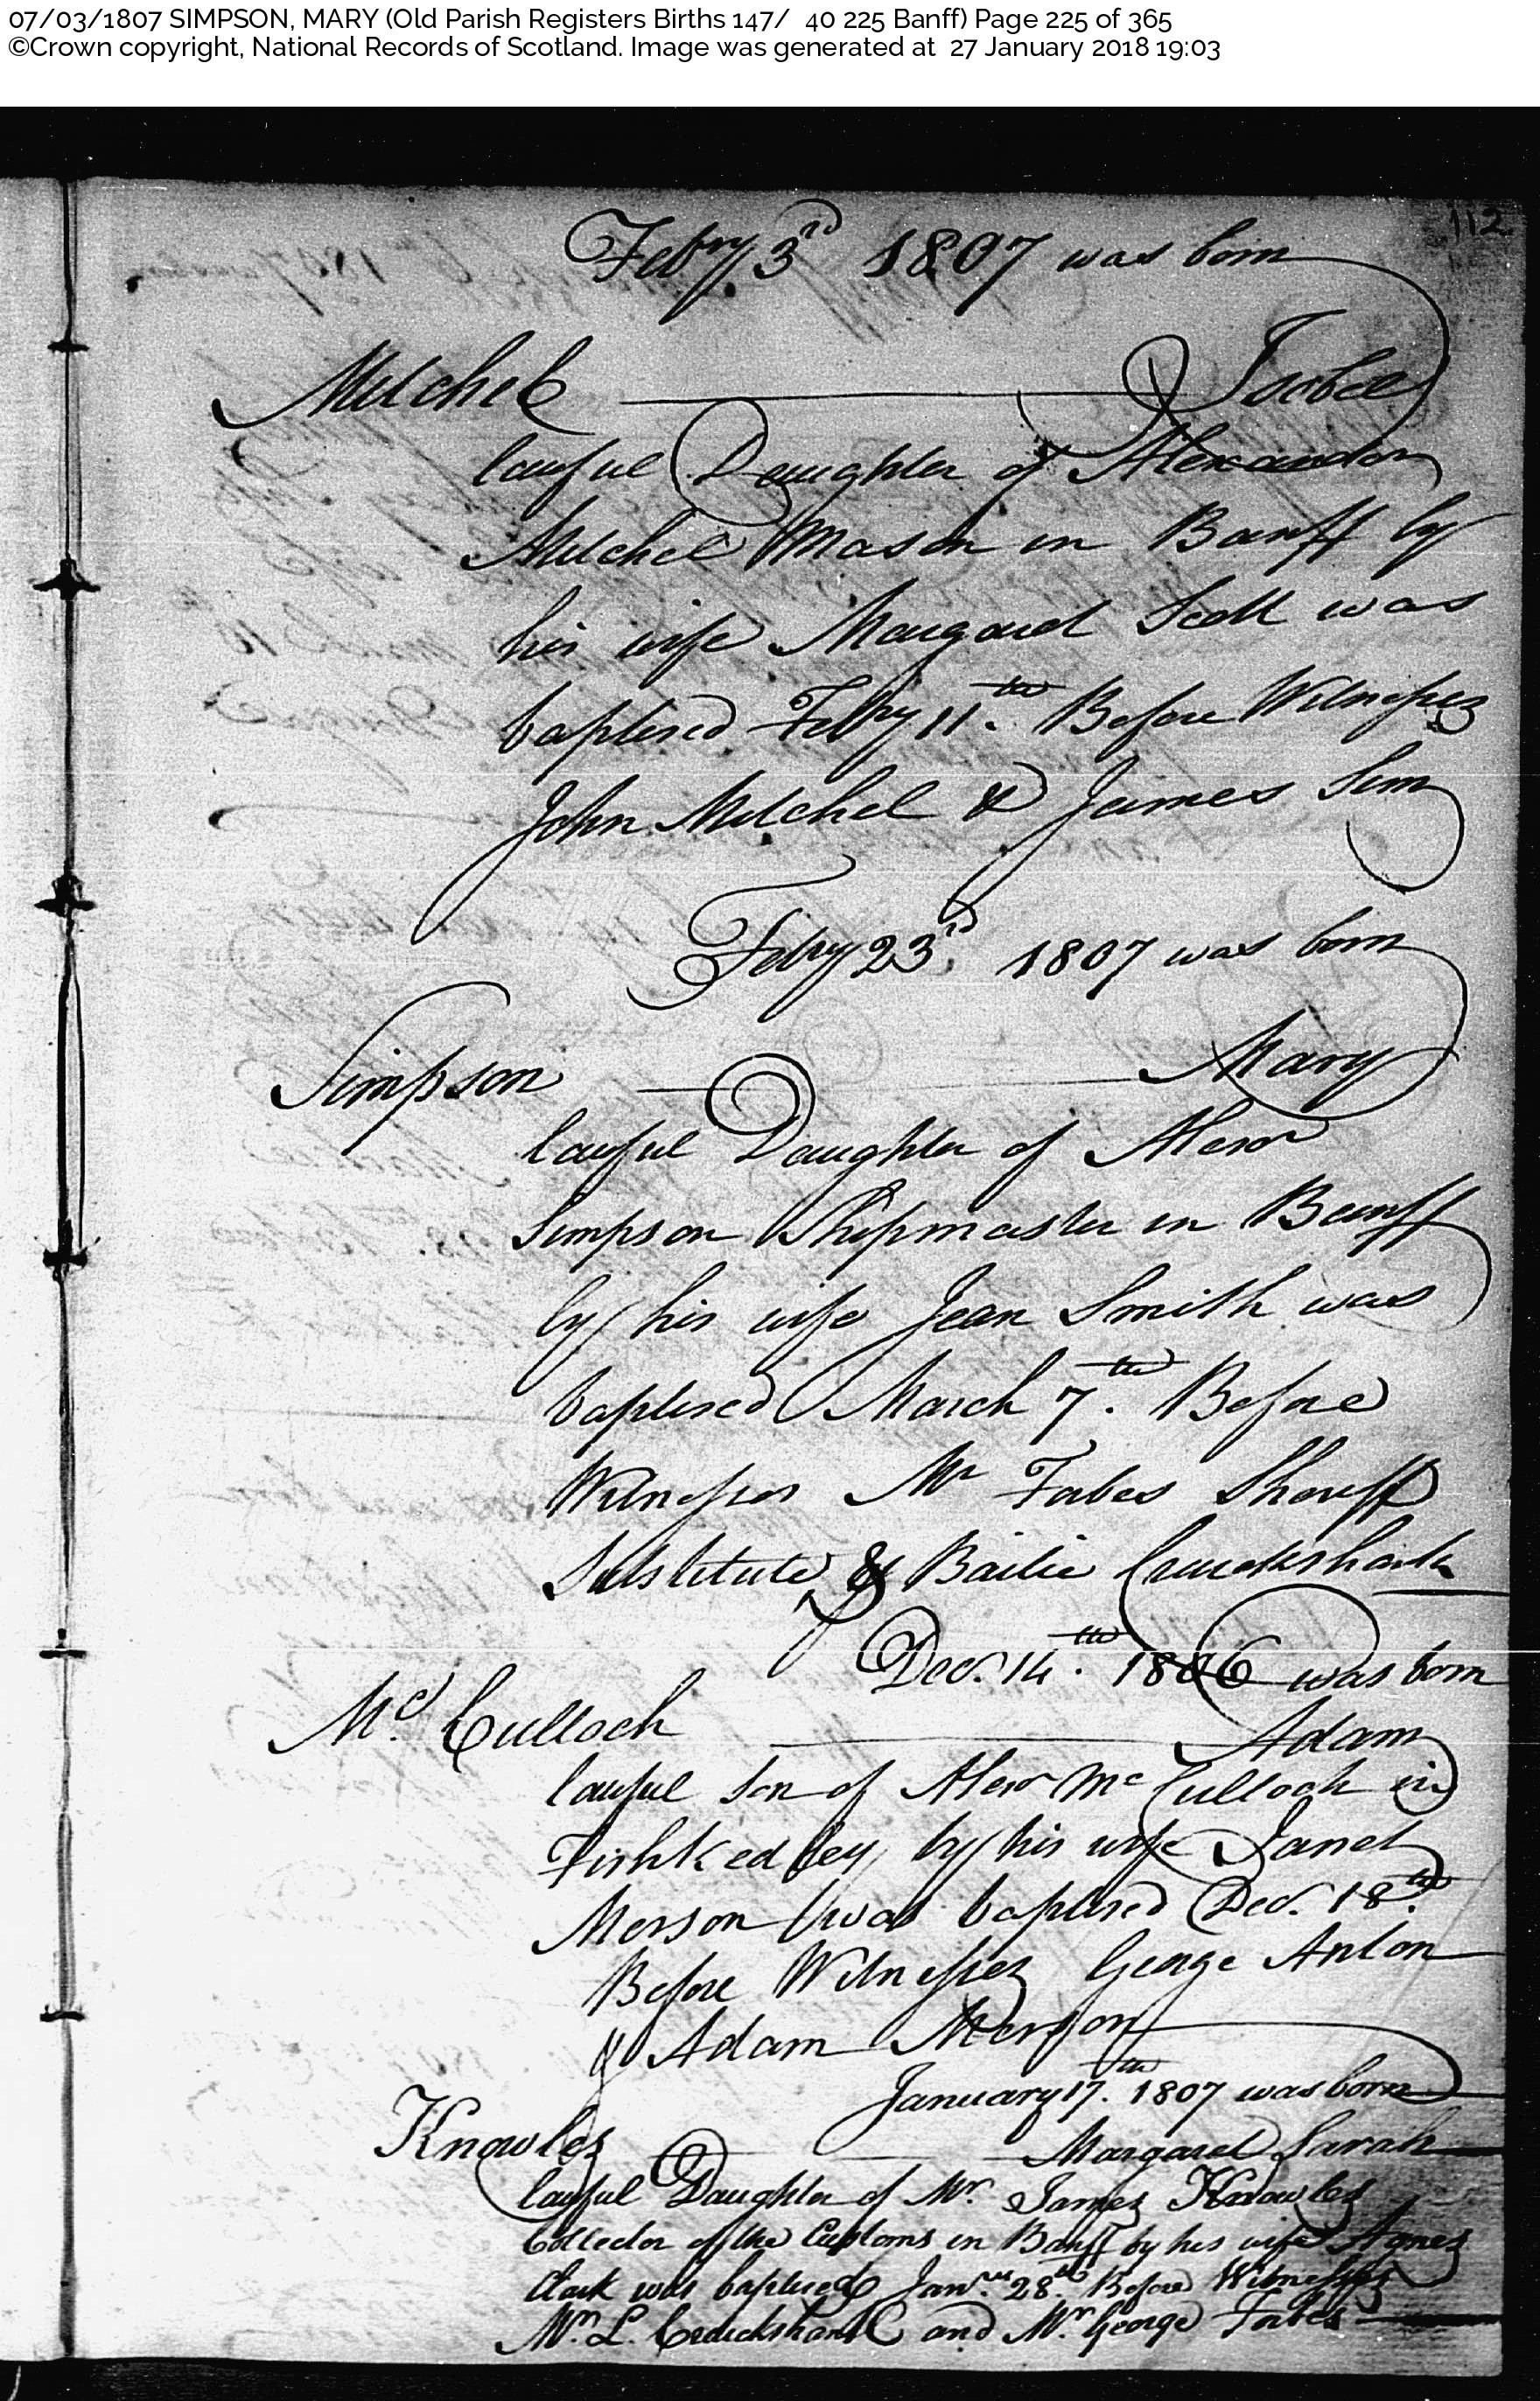 07/03/1807 SIMPSON, MARY (Old Parish Registers Births 147/ 40 225 Banff) Page 225 of 365
©Crown copyright, National Records of Scotland. Image was generated at 27 January 2018 19:03
112
Febry 3rd 1807 was born
Mitchel Isobel
lawful Daughter of Alexander
Mitchel Mason in Banff by
his wife Margaret Scott was
baptised Febry 11th Before Witnesses
John Mitchel & James Sim
Febry 23rd 1807 was born
Simpson Mary
lawful Daughter of Alexr
Simpson Shipmaster in Banff
by his wife Jean Smith was
baptised March 7th Before
Witnesses Mr Forbes Sheriff
Substitute & Bailie Cruickshank
Decr. 14th 1806 was born
Mc Culloch Adam
lawful Son of Alexr Mc Culloch in
by his wife Janet
Merson was baptised Decr. 18th
Before Witnesses George Anton
& Adam Merson
January 17th 1807 was born
Knowles Margaret Sarah
lawful Daughter of Mr. James Knowles
Collector of the Customs in Banff by his wife Agnes
Clark was baptised Janry 28th Before Witnesses
Mr. L. Cruickshank and Mr. George Forbes